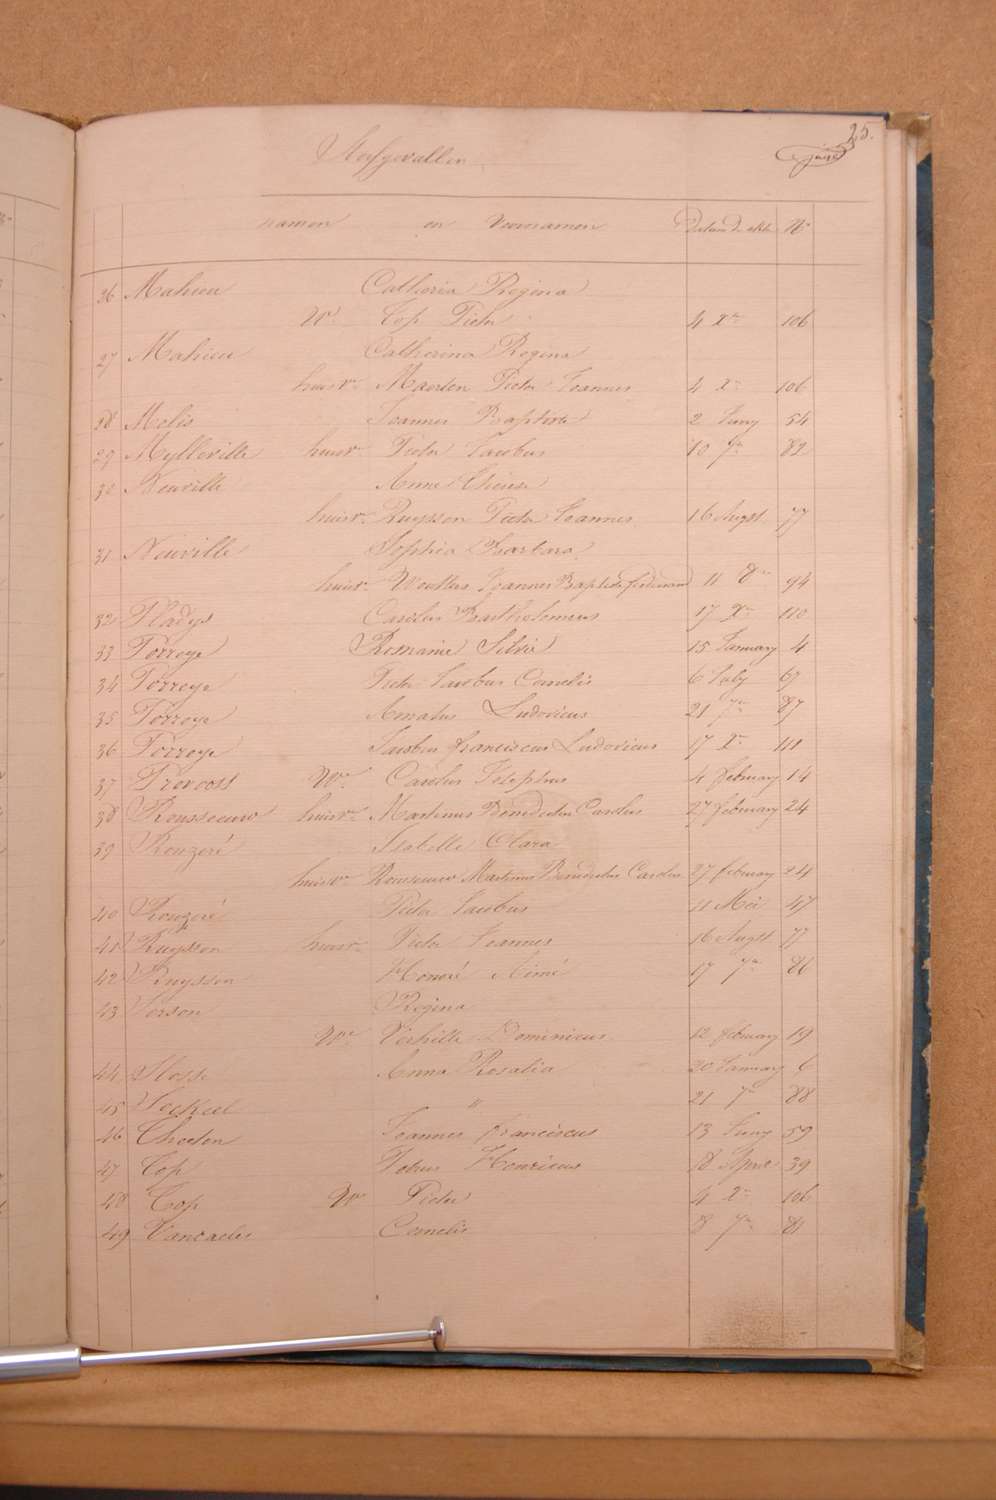 25.
Sterfgevallen
Namen en Voornamen Datum der akte N°
26 Mahieu Catheria Regina
Wᵉ Top Pieter 4 Xᵉʳ 106
27 Mahieu Catherina Regina
huisvᵉ Maerten Pieter Joannes 4 Xᵉʳ 106
28 Melis Joannes Baptiste 2 Juny 54
29 Mylleville huisvʳ Pieter Jacobus 10 7ᵉʳ 82
30 Neuville Anne Therese
huisvᵉ Ruysson Pieter Joannes 16 Augst 77
31 Neuville Sophia Barbara
huisvᵉ Wouters Joannes Baptiste ferdinand 11 8ᵉʳ 94
32 Pladys Carolus Bartholomeus 17 Xᵉʳ 110
33 Porreye Romanie Silvie 15 January 4
34 Porreye Pieter Jacobus Cornelis 6 July 67
35 Porreye Amatus Ludovicus 21 7ᵉʳ 87
36 Porreye Jacobus franciscus Ludovicus 17 Xᵉʳ 111
37 Prevoost Wᵉ Carolus 4 february 14
38 Rousseeuw huisvᵉ Martinus Benedictus Carolus 27 february 24
39 Rouzeré Isabelle Clara
huisvᵉ Rousseeuw Martinus Benedictus Carolus 27 february 24
40 Rouzeré Pieter Jacobus 11 Mei 47
41 Ruysson huisvᵉ Pieter Joannes 16 Augst 77
42 Ruysson Honoré Aimé 17 7ᵉʳ 86
43 Serson Regina
Wᵉ Verhille Dominicus 12 february 19
44 Slosse Anna Rosalia 20 January 6
45 " 21 7ᵉʳ 88
46 Thooten Joannes franciscus 13 Juny 59
47 Top Henricus 18 April 39
48 Top Wʳ Pieter 4 Xᵉʳ 106
49 Cornelis 8 7ᵉʳ 81